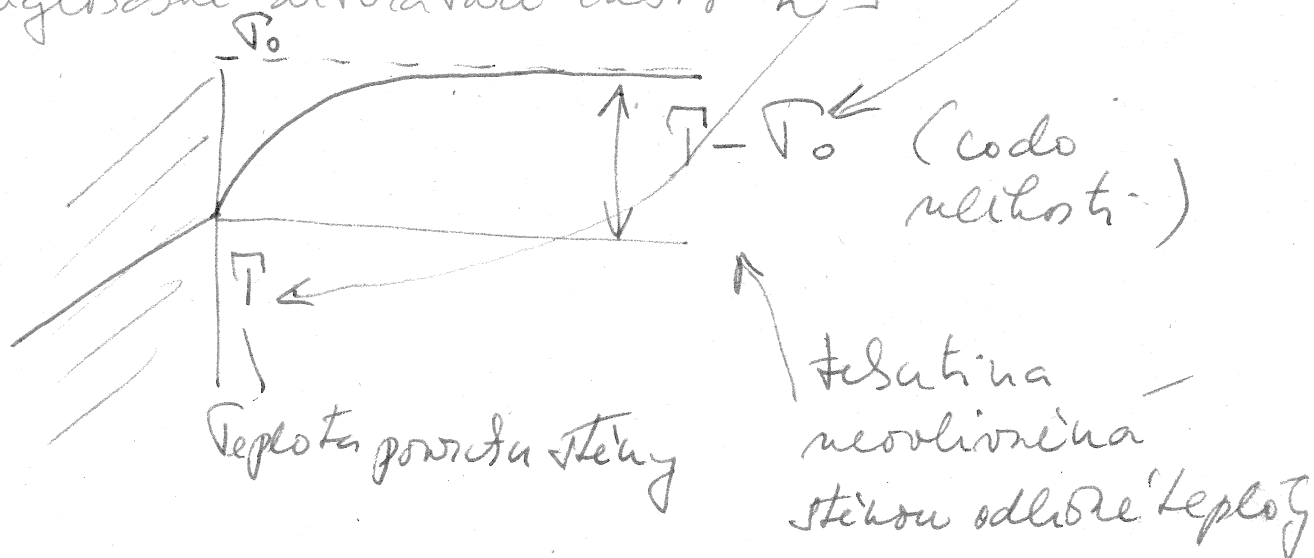 T₀
T - T₀ (co do
velikosti)
T
Teplota povrchu stěny
tekutina
neovlivněná
stěnou odlišné teploty